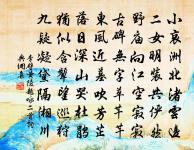 小哀洲北渚雲邊
二女明妝共儼然
野廟向江空寂寂
古碑無字草芊芊
東風近墓吹芳芷
落日深山哭杜鵑
猶似含顰望巡狩
九疑凝黛隔湘川